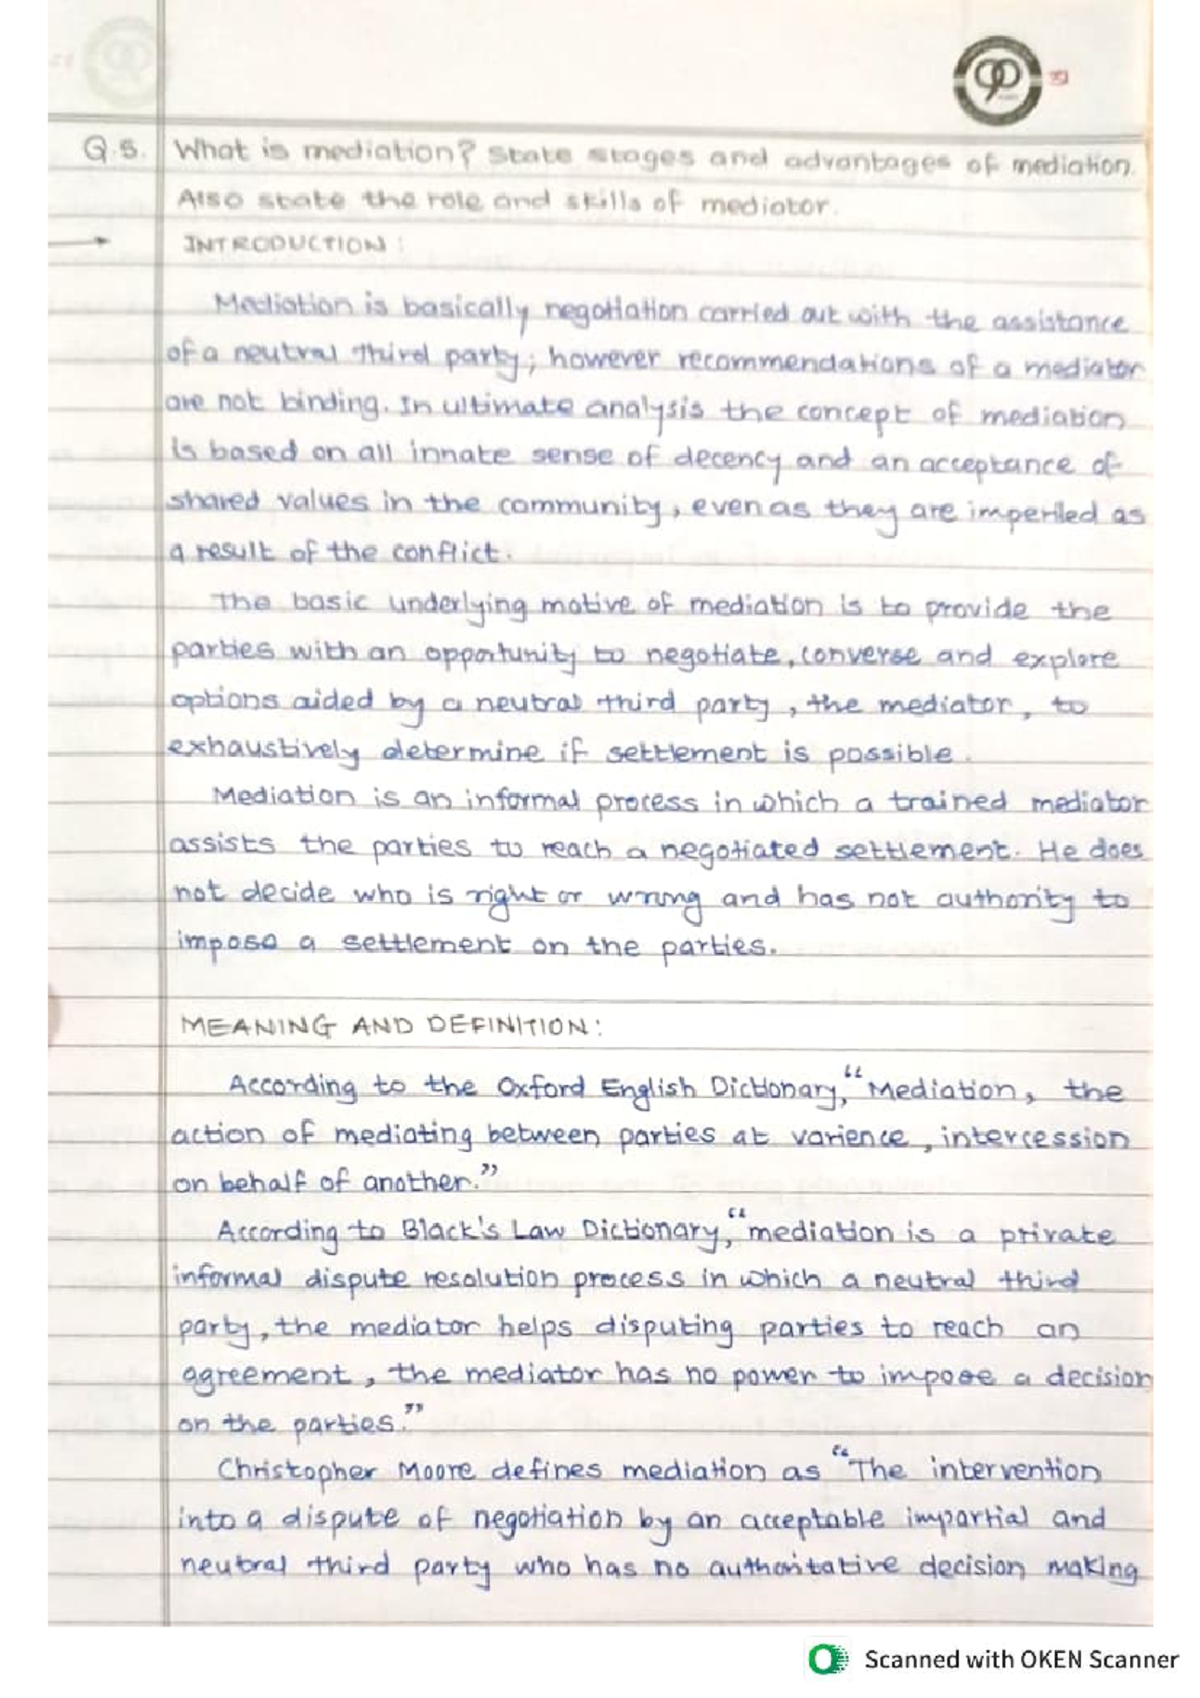 Q.5. What is mediation? State stages and advantages of mediation.
Also state the role and skills of mediator.
INTRODUCTION :
Mediation is basically negotiation carried out with the assistance
of a neutral third party; however recommendations of a mediator
are not binding. In ultimate analysis the concept of mediation
is based on all innate sense of decency and an acceptance of
shared values in the community, even as they are imperiled as
a result of the conflict.
The basic underlying motive of mediation is to provide the
parties with an opportunity to negotiate, converse and explore
options aided by a neutral third party, the mediator, to
exhaustively determine if settlement is possible.
Mediation is an informal process in which a trained mediator
assists the parties to reach a negotiated settlement. He does
not decide who is right or wrong and has not authority to
impose a settlement on the parties.
MEANING AND DEFINITION :
According to the Oxford English Dictionary, "Mediation, the
action of mediating between parties at varience, intercession
on behalf of another."
According to Black's Law Dictionary, "mediation is a private
informal dispute resolution process in which a neutral third
party, the mediator helps disputing parties to reach an
agreement, the mediator has no power to impose a decision
on the parties."
Christopher Moore defines mediation as "The intervention
into a dispute of negotiation by an acceptable impartial and
neutral third party who has no authoritative decision making
Scanned with OKEN Scanner